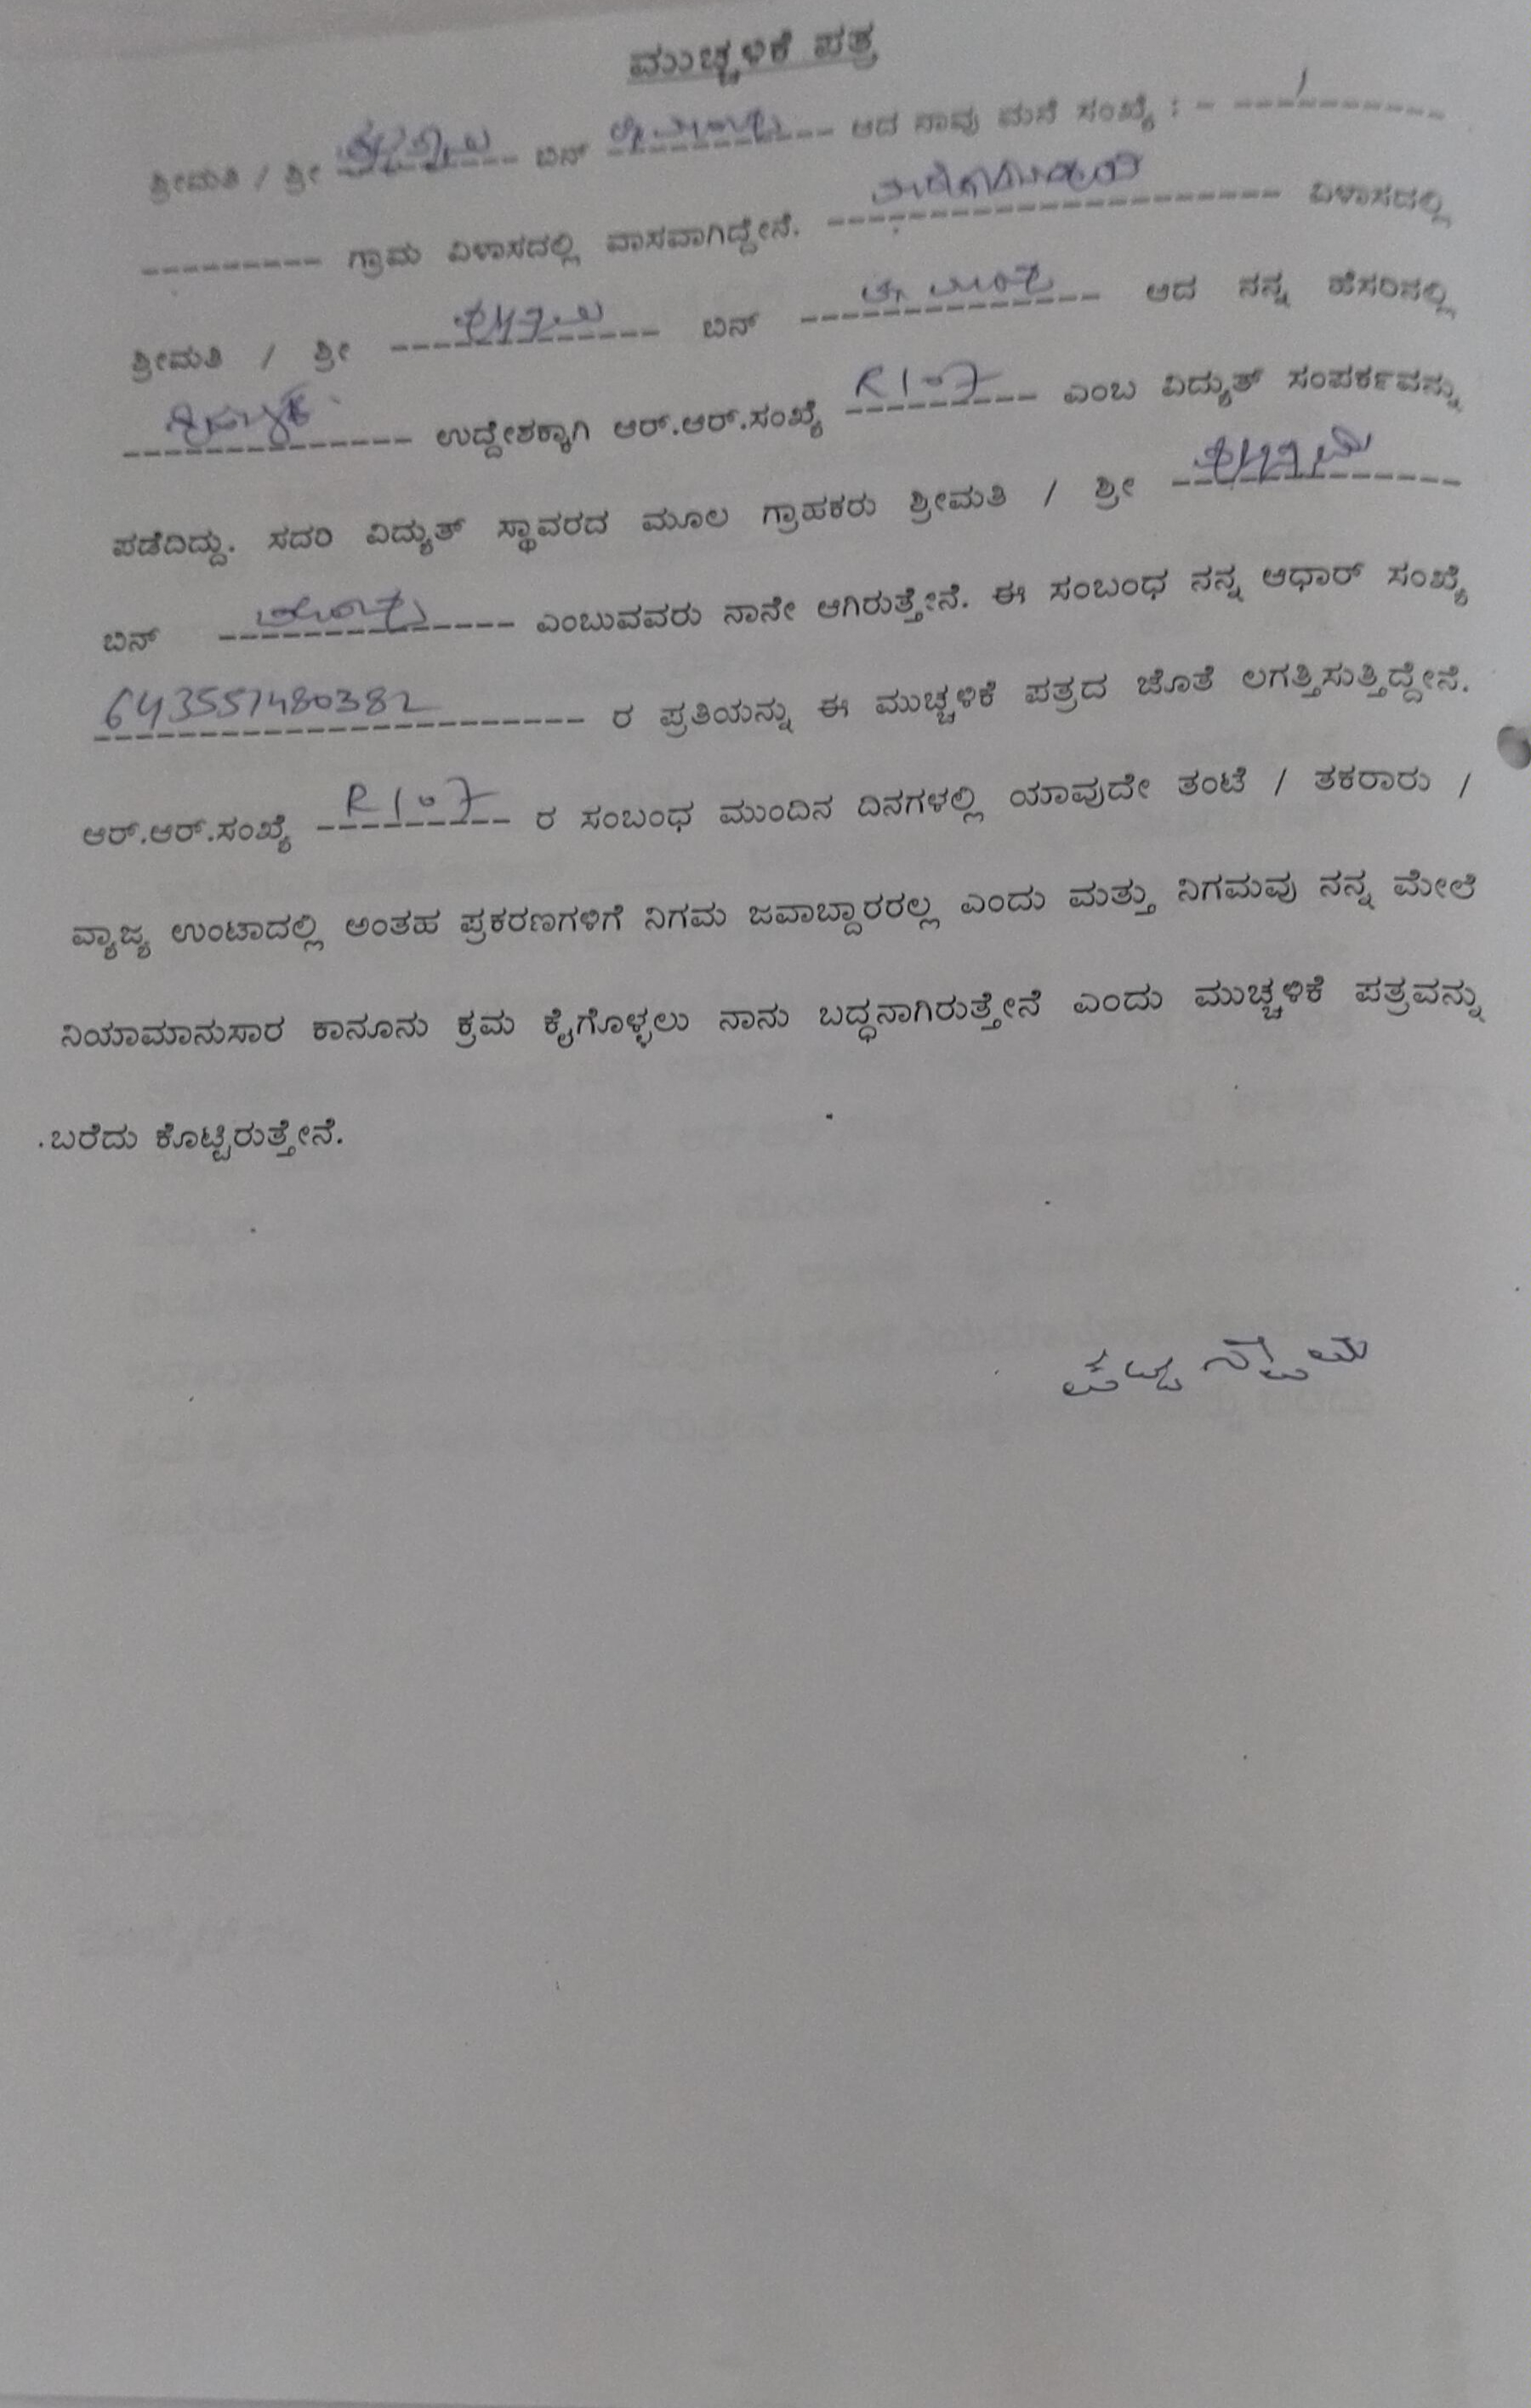 ಮುಚ್ಚಳಿಕೆ ಪತ್ರ
ಶ್ರೀಮತಿ / ಶ್ರೀ ಬಿನ್ ಆದ ನಾವು ಮನೆ ಸಂಖ್ಯೆ : -
ಗ್ರಾಮ ವಿಳಾಸದಲ್ಲಿ ವಾಸವಾಗಿದ್ದೇನೆ. ವಿಳಾಸದಲ್ಲಿ
ಶ್ರೀಮತಿ / ಶ್ರೀ ಬಿನ್ ಆದ ನನ್ನ ಹೆಸರಿನಲ್ಲಿ
ಉದ್ದೇಶಕ್ಕಾಗಿ ಆರ್.ಆರ್.ಸಂಖ್ಯೆ R107 ಎಂಬ ವಿದ್ಯುತ್ ಸಂಪರ್ಕವನ್ನು
ಪಡೆದಿದ್ದು. ಸದರಿ ವಿದ್ಯುತ್ ಸ್ಥಾವರದ ಮೂಲ ಗ್ರಾಹಕರು ಶ್ರೀಮತಿ / ಶ್ರೀ
ಬಿನ್ ಎಂಬುವವರು ನಾನೇ ಆಗಿರುತ್ತೇನೆ. ಈ ಸಂಬಂಧ ನನ್ನ ಆಧಾರ್ ಸಂಖ್ಯೆ
643551480382 ರ ಪ್ರತಿಯನ್ನು ಈ ಮುಚ್ಚಳಿಕೆ ಪತ್ರದ ಜೊತೆ ಲಗತ್ತಿಸುತ್ತಿದ್ದೇನೆ.
ಆರ್.ಆರ್.ಸಂಖ್ಯೆ R107 ರ ಸಂಬಂಧ ಮುಂದಿನ ದಿನಗಳಲ್ಲಿ ಯಾವುದೇ ತಂಟೆ / ತಕರಾರು /
ವ್ಯಾಜ್ಯ ಉಂಟಾದಲ್ಲಿ ಅಂತಹ ಪ್ರಕರಣಗಳಿಗೆ ನಿಗಮ ಜವಾಬ್ದಾರರಲ್ಲ ಎಂದು ಮತ್ತು ನಿಗಮವು ನನ್ನ ಮೇಲೆ
ನಿಯಾಮಾನುಸಾರ ಕಾನೂನು ಕ್ರಮ ಕೈಗೊಳ್ಳಲು ನಾನು ಬದ್ಧನಾಗಿರುತ್ತೇನೆ ಎಂದು ಮುಚ್ಚಳಿಕೆ ಪತ್ರವನ್ನು
ಬರೆದು ಕೊಟ್ಟಿರುತ್ತೇನೆ.